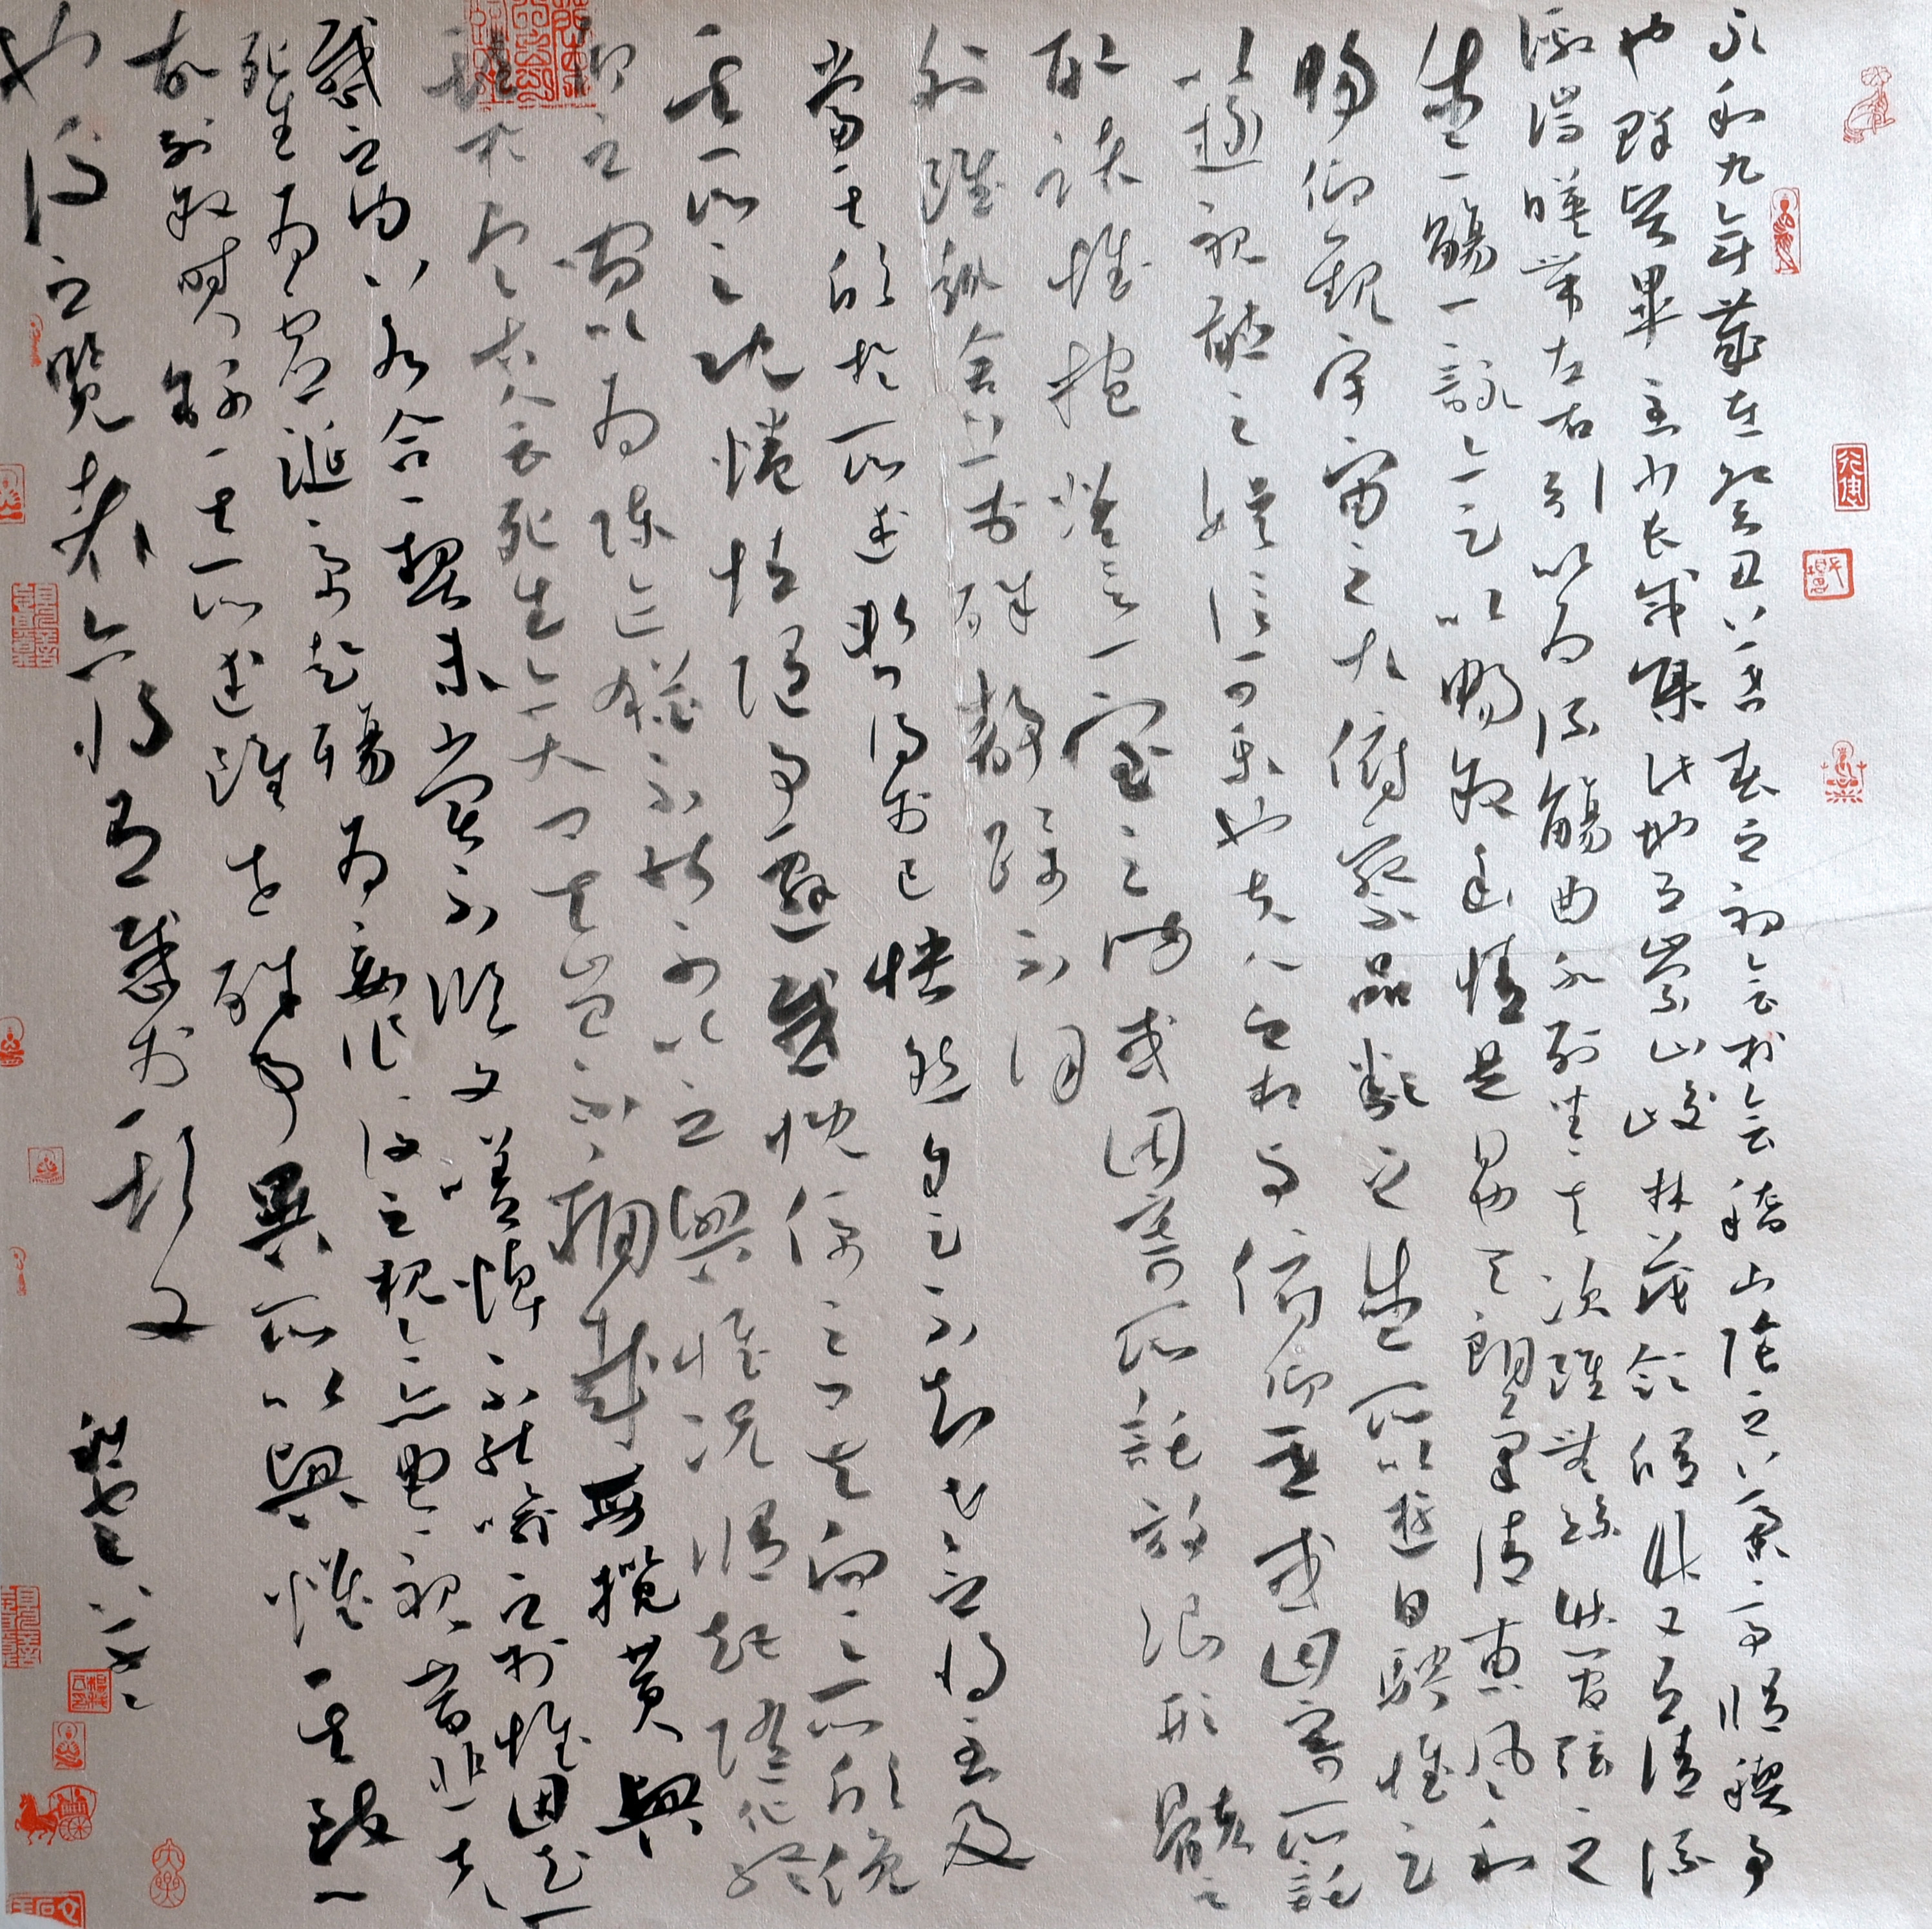 永和九年歲在癸丑暮春之初會於會稽山陰之蘭亭脩禊事
也群賢畢至少長咸集此地有崇山峻林茂領脩竹又有清流
激湍暎帶左右引以為流觴曲水列坐其次雖無絲竹管弦之
盛一觴一詠亦足以暢叙幽情是日也天朗氣清惠風和
暢仰觀宇宙之大俯察品類之盛所以遊目騁懷足
以極視聽之娛信可樂也夫人之相與俯仰一世或因寄所託
取諸懷抱悟言一室之內或因寄所託放浪形骸之
外雖趣舍萬殊靜躁不同
當其欣於所遇暫得於己怏然自足不知老之將至及
其所之既惓情隨事遷感慨係之矣向之所欣俛
仰之間以為陳迹猶不能不以之興懷況脩短隨化終
期於盡古人云死生亦大矣豈不痛哉每攬昔人興
感之由若合一契未嘗不臨文嗟悼不能喻之於懷固知一
死生為虛誕齊彭殤為妄作後之視今亦由今之視昔悲夫
故列叙時人錄其所述雖世殊事異所以興懷其致一
也後之覽者亦將有感於斯文